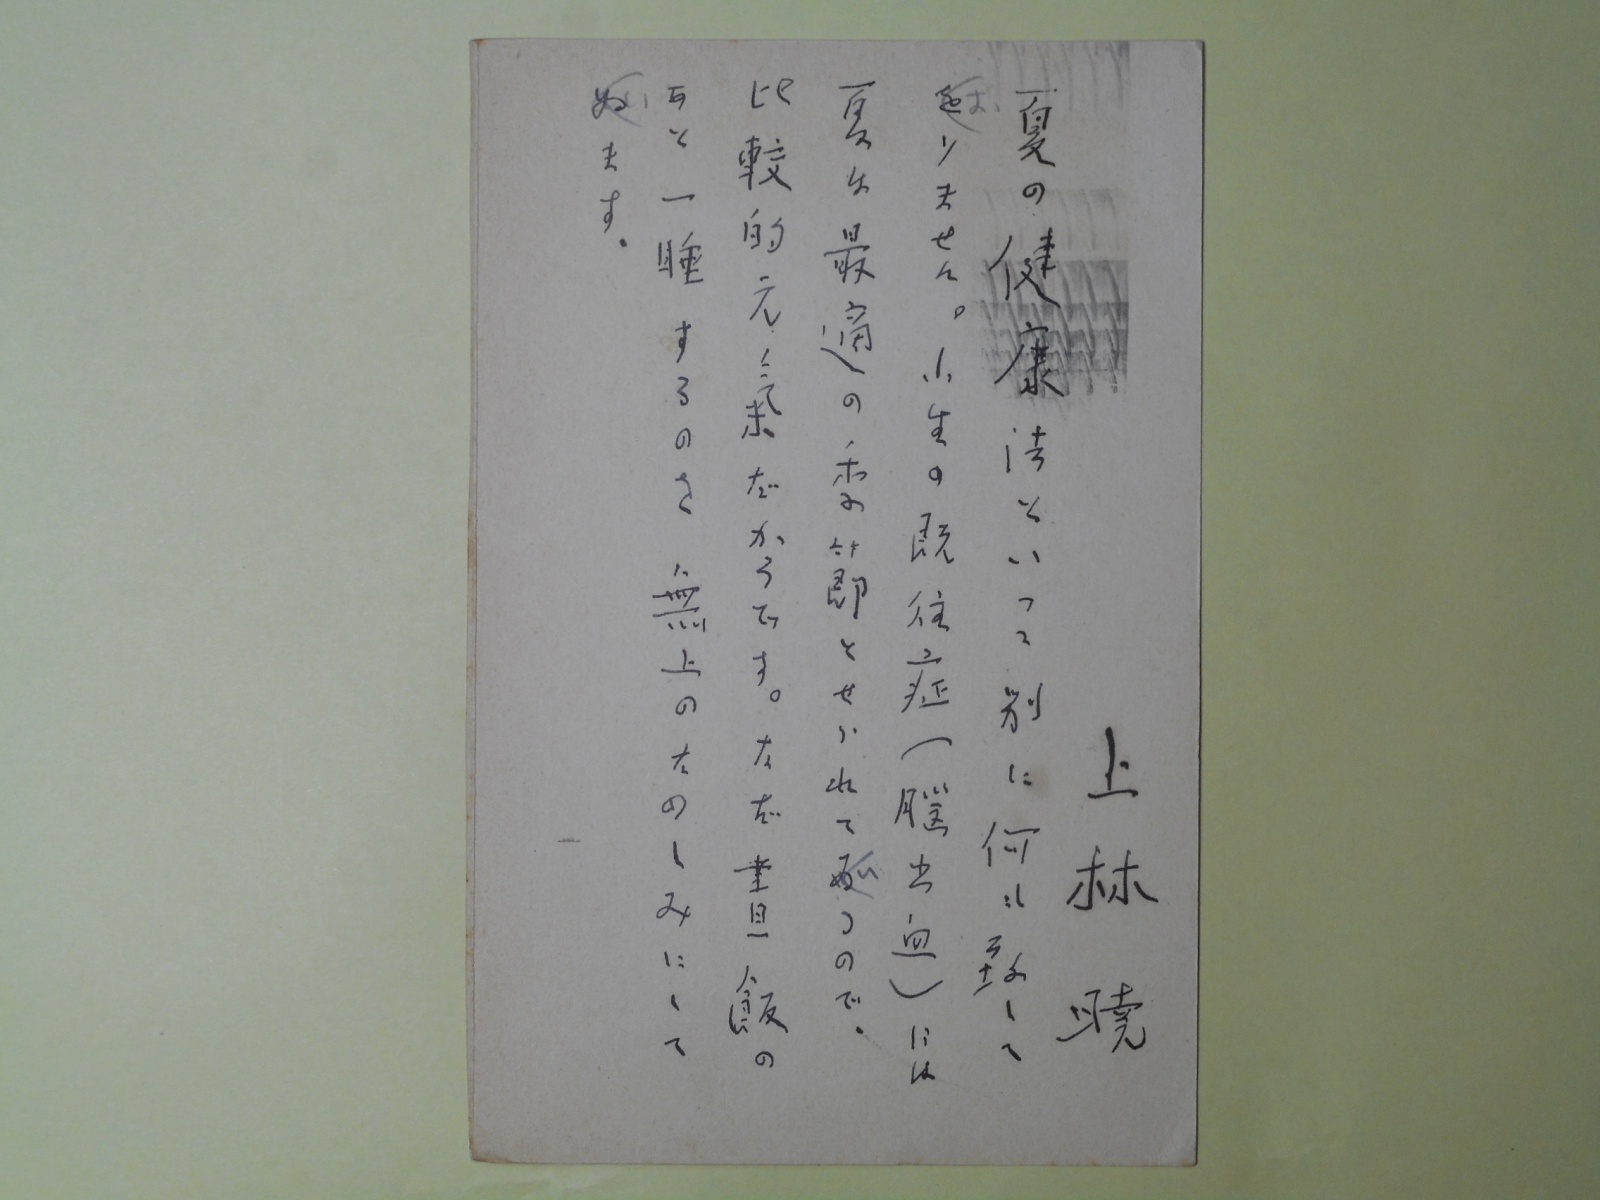 上林暁
夏の健康法といって別に何も致して
居りません。小生の既往症(脳出血)には
夏は最適の季節とせられて居るので、
比較的元氣だからです。ただ晝飯の
あと一睡するのを無上のたのしみにして
ゐます。